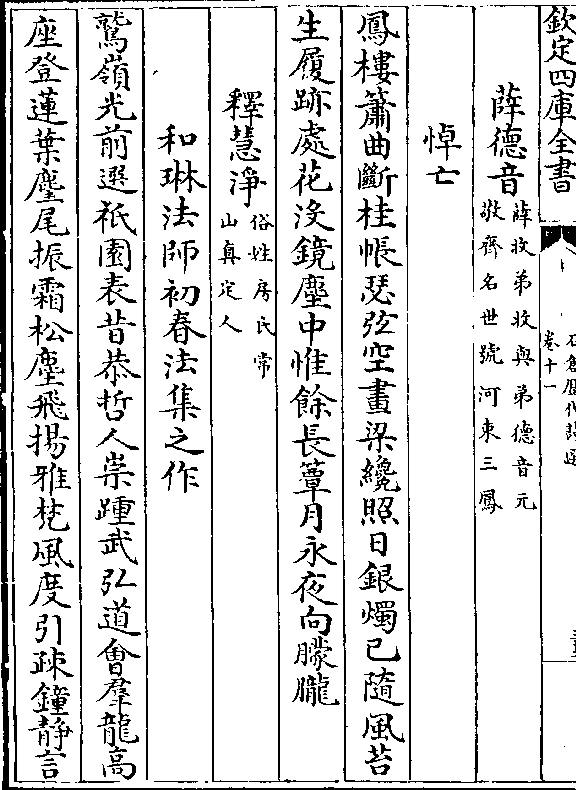 欽定四庫全書
石倉歷代詩選
卷十一
薛德音薛收弟收與弟德音元
敬齊名世號河東三鳳
悼亡
鳳樓簫曲斷桂帳瑟弦空畫梁纔照日銀燭已隨風苔
生履跡處花沒鏡塵中惟餘長簟月永夜向朦朧
釋慧淨俗姓房氏常
山真定人
和琳法師初春法集之作
鷲嶺光前選祇園表昔恭哲人崇踵武弘道會羣龍高
座登蓮葉麈尾振霜松塵飛揚雅梵風度引疎鐘靜言